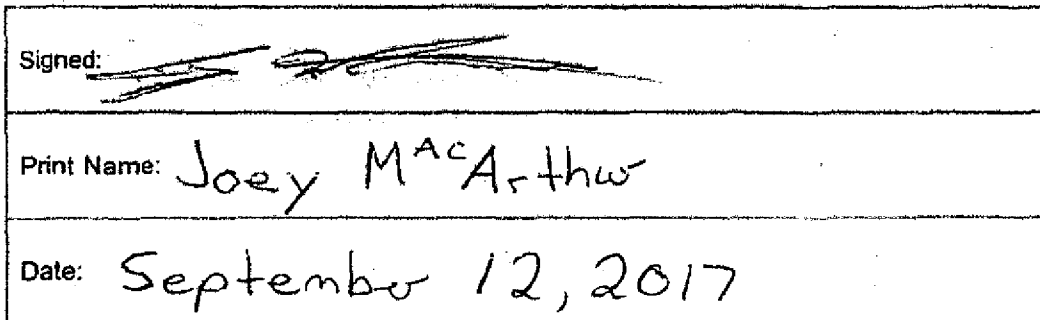 Signed:
Print Name: Joey MacArthur
Date: September 12, 2017